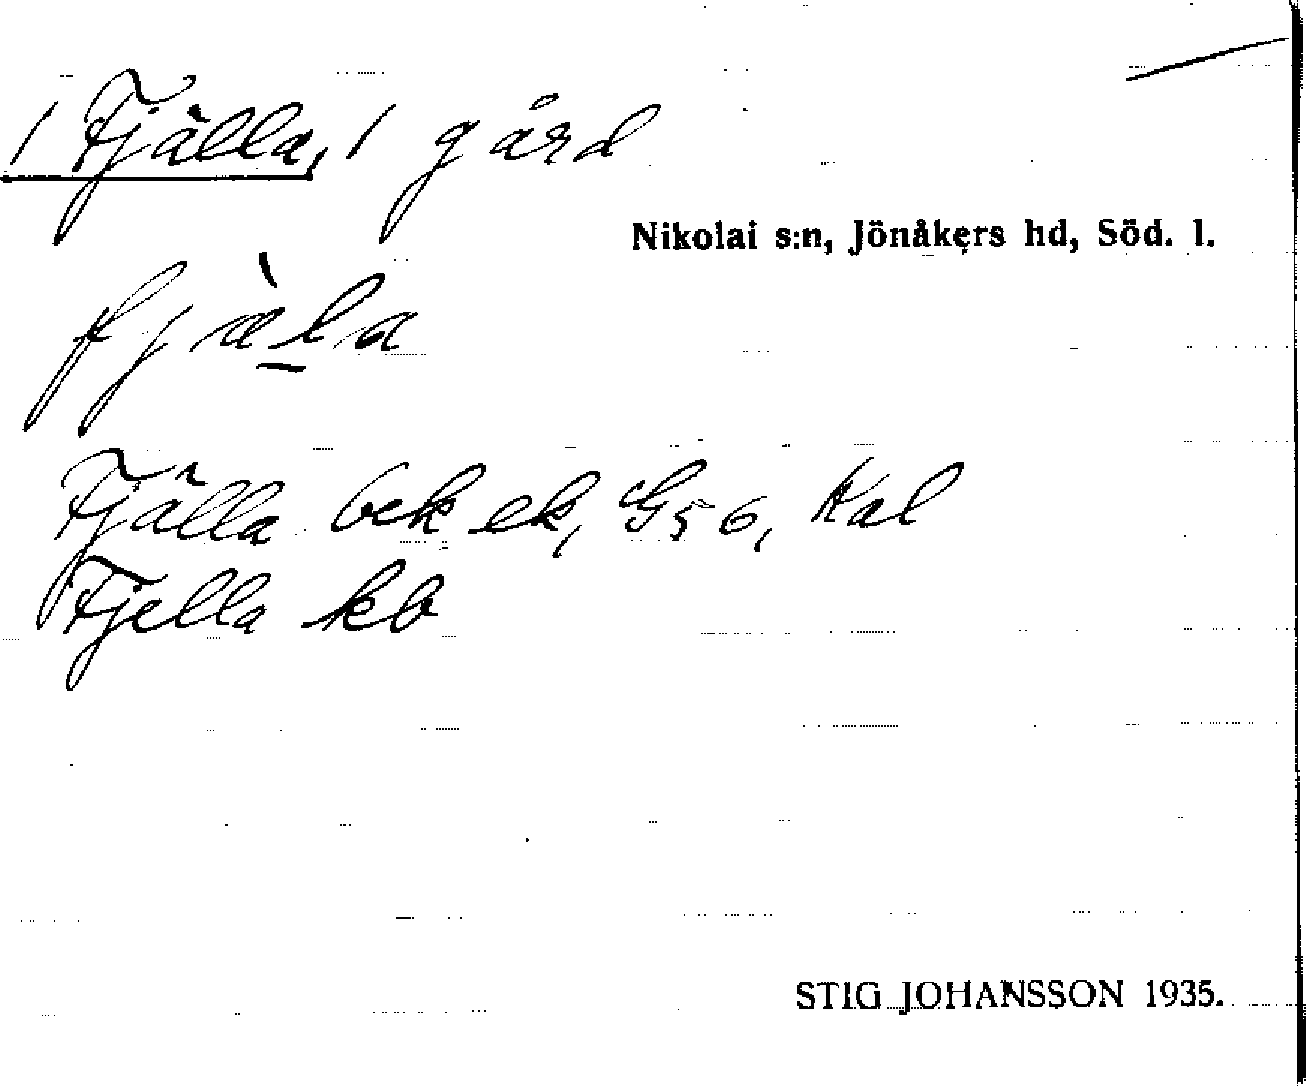 / Fjälla, / gård
Nikolai s:n, Jönåkers hd, Söd. l.
fjæ̀l̲a
Fjälla bek ek, G56, Kal
Fjella kb
STIG JOHANSSON 1935.